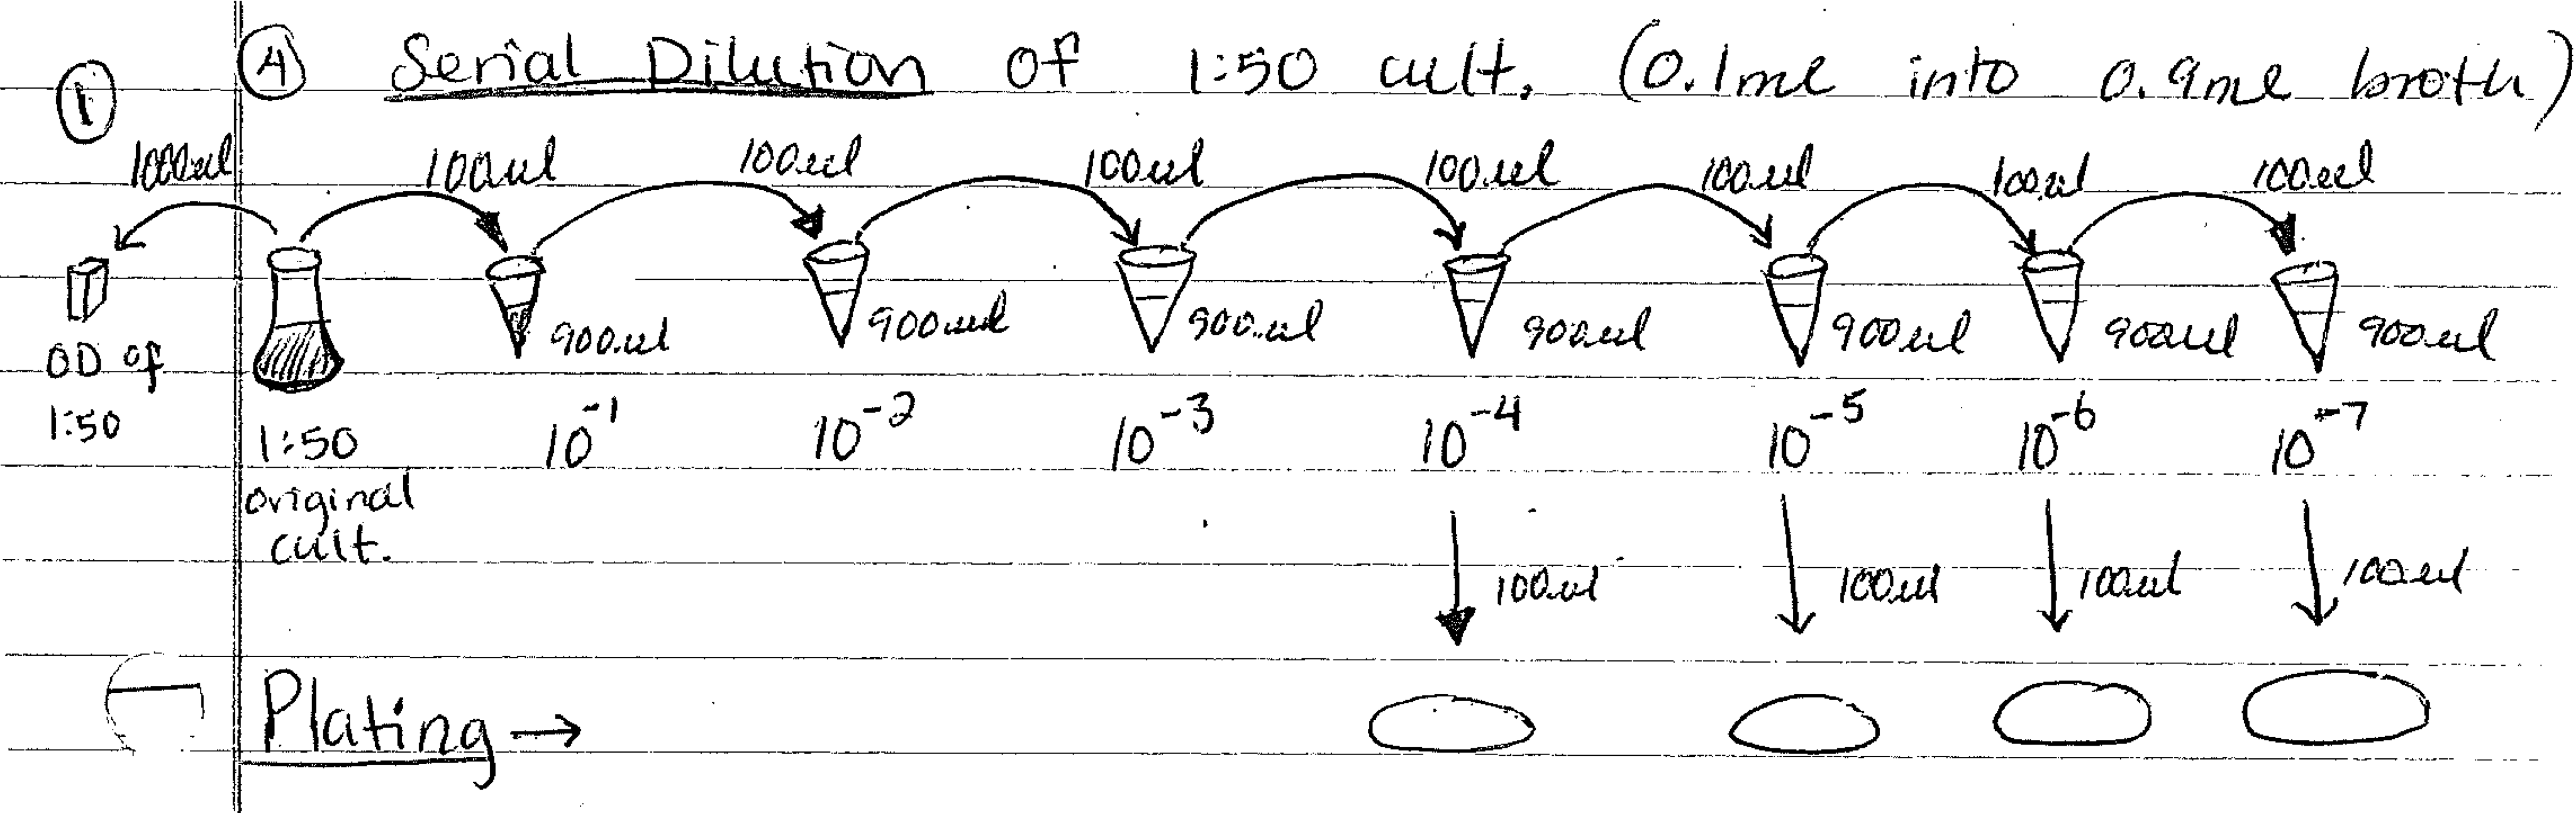 ① Ⓐ Serial Dilution of 1:50 cult. (0.1ml into 0.9ml broth)
1000ul 100ul 100ul 100ul 100ul 100ul 100ul 100ul
900ul 900ul 900ul 900ul 900ul 900ul 900ul
OD of
1:50
1:50 10⁻¹ 10⁻² 10⁻³ 10⁻⁴ 10⁻⁵ 10⁻⁶ 10⁻⁷
original
cult.
100ul 100ul 100ul 100ul
Plating →